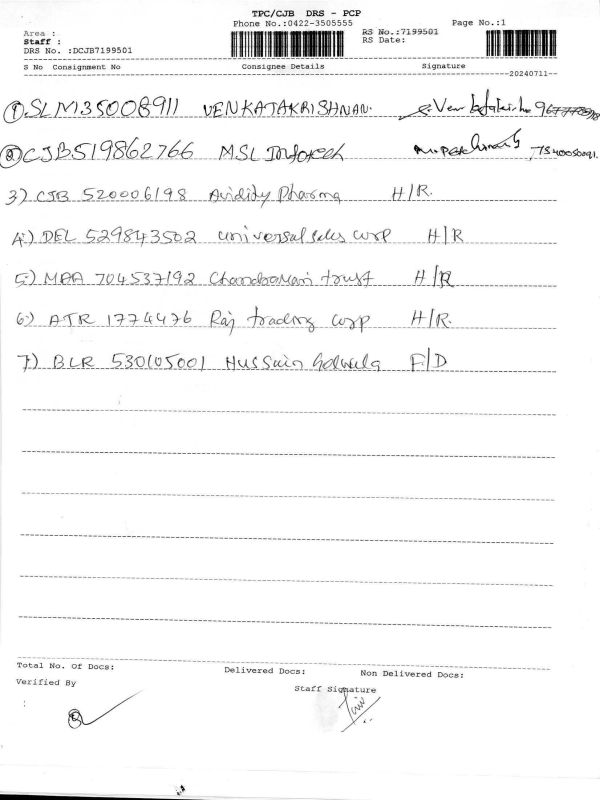 TPC/CJB DRS - PCP
Phone No.:0422-3505555 Page No.:1
Area :
Staff : RS No.:7199501
DRS No. :DCJB7199501 RS Date:
S No Consignment No Consignee Details Signature
20240711
1) SLM35008911 VENKATAKRISHNAN.
2) CJB519862766 MSL Infotech
3) CJB 520006198 Avidity Pharma H/R.
4) DEL 529843502 universal sales corp H/R
5) MAA 704537192 trust H/R
6) ATR 1774476 Raj trading corp H/R.
7) BLR 530105001 Hussain F/D
Total No. Of Docs: Delivered Docs: Non Delivered Docs:
Verified By Staff Signature